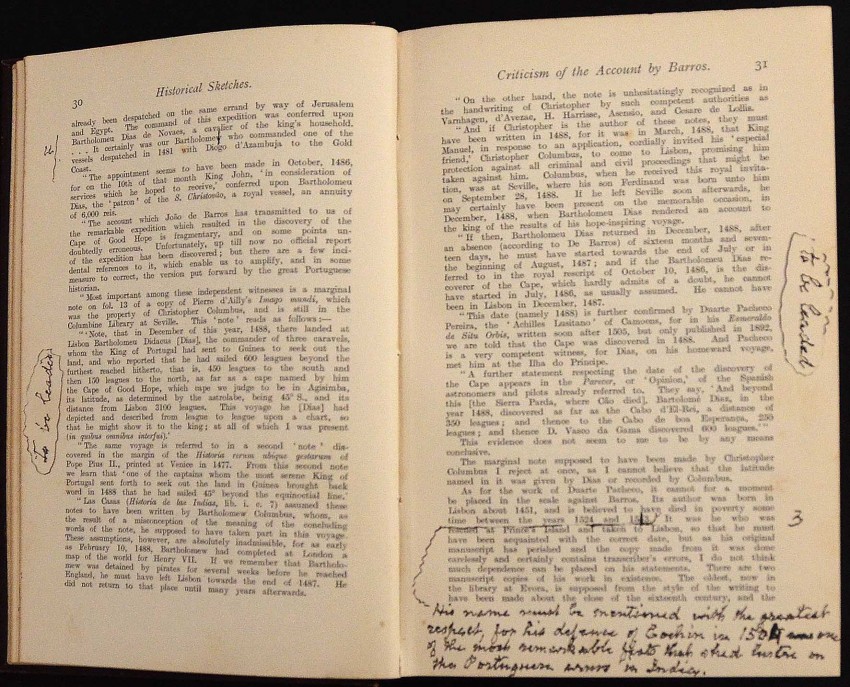 30
Historical Sketches.
already been despatched on the same errand by way of Jerusalem
and Egypt. The command of this expedition was conferred upon
Bartholomeu Dias de Novaes, a cavalier of the king's household.
. . . It certainly was our Bartholomeu who commanded one of the
vessels despatched in 1481 with Diogo d'Azambuja to the Gold
Coast.
"The appointment seems to have been made in October, 1486,
for on the 10th of that month King John, 'in consideration of
services which he hoped to receive,' conferred upon Bartholomeu
Dias, the 'patron' of the S. Christovão, a royal vessel, an annuity
of 6,000 reis.
"The account which João de Barros has transmitted to us of
the remarkable expedition which resulted in the discovery of the
Cape of Good Hope is fragmentary, and on some points un-
doubtedly erroneous. Unfortunately, up till now no official report
of the expedition has been discovered; but there are a few inci-
dental references to it, which enable us to amplify, and in some
measure to correct, the version put forward by the great Portuguese
historian.
"Most important among these independent witnesses is a marginal
note on fol. 13 of a copy of Pierre d'Ailly's Imago mundi, which
was the property of Christopher Columbus, and is still in the
Columbine Library at Seville. This 'note' reads as follows:—
"'Note, that in December of this year, 1488, there landed at
Lisbon Bartholomeu Didacus [Dias], the commander of three caravels,
whom the King of Portugal had sent to Guinea to seek out the
land, and who reported that he had sailed 600 leagues beyond the
furthest reached hitherto, that is, 450 leagues to the south and
then 150 leagues to the north, as far as a cape named by him
the Cape of Good Hope, which cape we judge to be in Agisimba,
its latitude, as determined by the astrolabe, being 45° S., and its
distance from Lisbon 3100 leagues. This voyage he [Dias] had
depicted and described from league to league upon a chart, so
that he might show it to the king; at all of which I was present
(in quibus omnibus interfui).'
"The same voyage is referred to in a second 'note' dis-
covered in the margin of the Historia rerum ubique gestarum of
Pope Pius II., printed at Venice in 1477. From this second note
we learn that 'one of the captains whom the most serene King of
Portugal sent forth to seek out the land in Guinea brought back
word in 1488 that he had sailed 45° beyond the equinoctial line.'
"Las Casas (Historia de las Indias, lib. i. c. 7) assumed these
notes to have been written by Bartholomew Columbus, whom, as
the result of a misconception of the meaning of the concluding
words of the note, he supposed to have taken part in this voyage.
These assumptions, however, are absolutely inadmissible, for as early
as February 10, 1488, Bartholomew had completed at London a
map of the world for Henry VII. If we remember that Bartholo-
mew was detained by pirates for several weeks before he reached
England, he must have left Lisbon towards the end of 1487. He
did not return to that place until many years afterwards.
to be leaded
Criticism of the Account by Barros.
31
"On the other hand, the note is unhesitatingly recognized as in
the handwriting of Christopher by such competent authorities as
Varnhagen, d'Avezac, H. Harrisse, Asensio, and Cesare de Lollis.
"And if Christopher is the author of these notes, they must
have been written in 1488, for it was in March, 1488, that King
Manuel, in response to an application, cordially invited his 'especial
friend,' Christopher Columbus, to come to Lisbon, promising him
protection against all criminal and civil proceedings that might be
taken against him. Columbus, when he received this royal invita-
tion, was at Seville, where his son Ferdinand was born unto him
on September 28, 1488. If he left Seville soon afterwards, he
may certainly have been present on the memorable occasion, in
December, 1488, when Bartholomeu Dias rendered an account to
the king of the results of his hope-inspiring voyage.
"If then, Bartholomeu Dias returned in December, 1488, after
an absence (according to De Barros) of sixteen months and seven-
teen days, he must have started towards the end of July or in
the beginning of August, 1487; and if the Bartholomeu Dias re-
ferred to in the royal rescript of October 10, 1486, is the dis-
coverer of the Cape, which hardly admits of a doubt, he cannot
have started in July, 1486, as usually assumed. He cannot have
been in Lisbon in December, 1487.
"This date (namely 1488) is further confirmed by Duarte Pacheco
Pereira, the 'Achilles Lusitano' of Camoens, for in his Esmeraldo
de Situ Orbis, written soon after 1505, but only published in 1892,
we are told that the Cape was discovered in 1488. And Pacheco
is a very competent witness, for Dias, on his homeward voyage,
met him at the Ilha do Principe.
"A further statement respecting the date of the discovery of
the Cape appears in the Parecer, or 'Opinion,' of the Spanish
astronomers and pilots already referred to. They say, 'And beyond
this [the Sierra Parda, where Cão died], Bartolomé Diaz, in the
year 1488, discovered as far as the Cabo d'El-Rei, a distance of
350 leagues; and thence to the Cabo de boa Esperança, 250
leagues; and thence D. Vasco da Gama discovered 600 leagues.'"
This evidence does not seem to me to be by any means
conclusive.
The marginal note supposed to have been made by Christopher
Columbus I reject at once, as I cannot believe that the latitude
named in it was given by Dias or recorded by Columbus.
As for the work of Duarte Pacheco, it cannot for a moment
be placed in the scale against Barros. Its author was born in
Lisbon about 1451, and is believed to have died in poverty some
time between the years 1524 and It was he who was
at Prince's Island and taken to Lisbon, so that he must
have been acquainted with the correct date, but as his original
manuscript has perished and the copy made from it was done
carelessly and certainly contains transcriber's errors, I do not think
much dependence can be placed on his statements. There are two
manuscript copies of his work in existence. The oldest, now in
the library at Evora, is supposed from the style of the writing to
have been made about the close of the sixteenth century, and the
to be leaded
3
His name must be mentioned with the greatest
respect, for his defence of Cochin in 1504 was one
of the most remarkable feats that shed lustre on
the Portuguese arms in India.